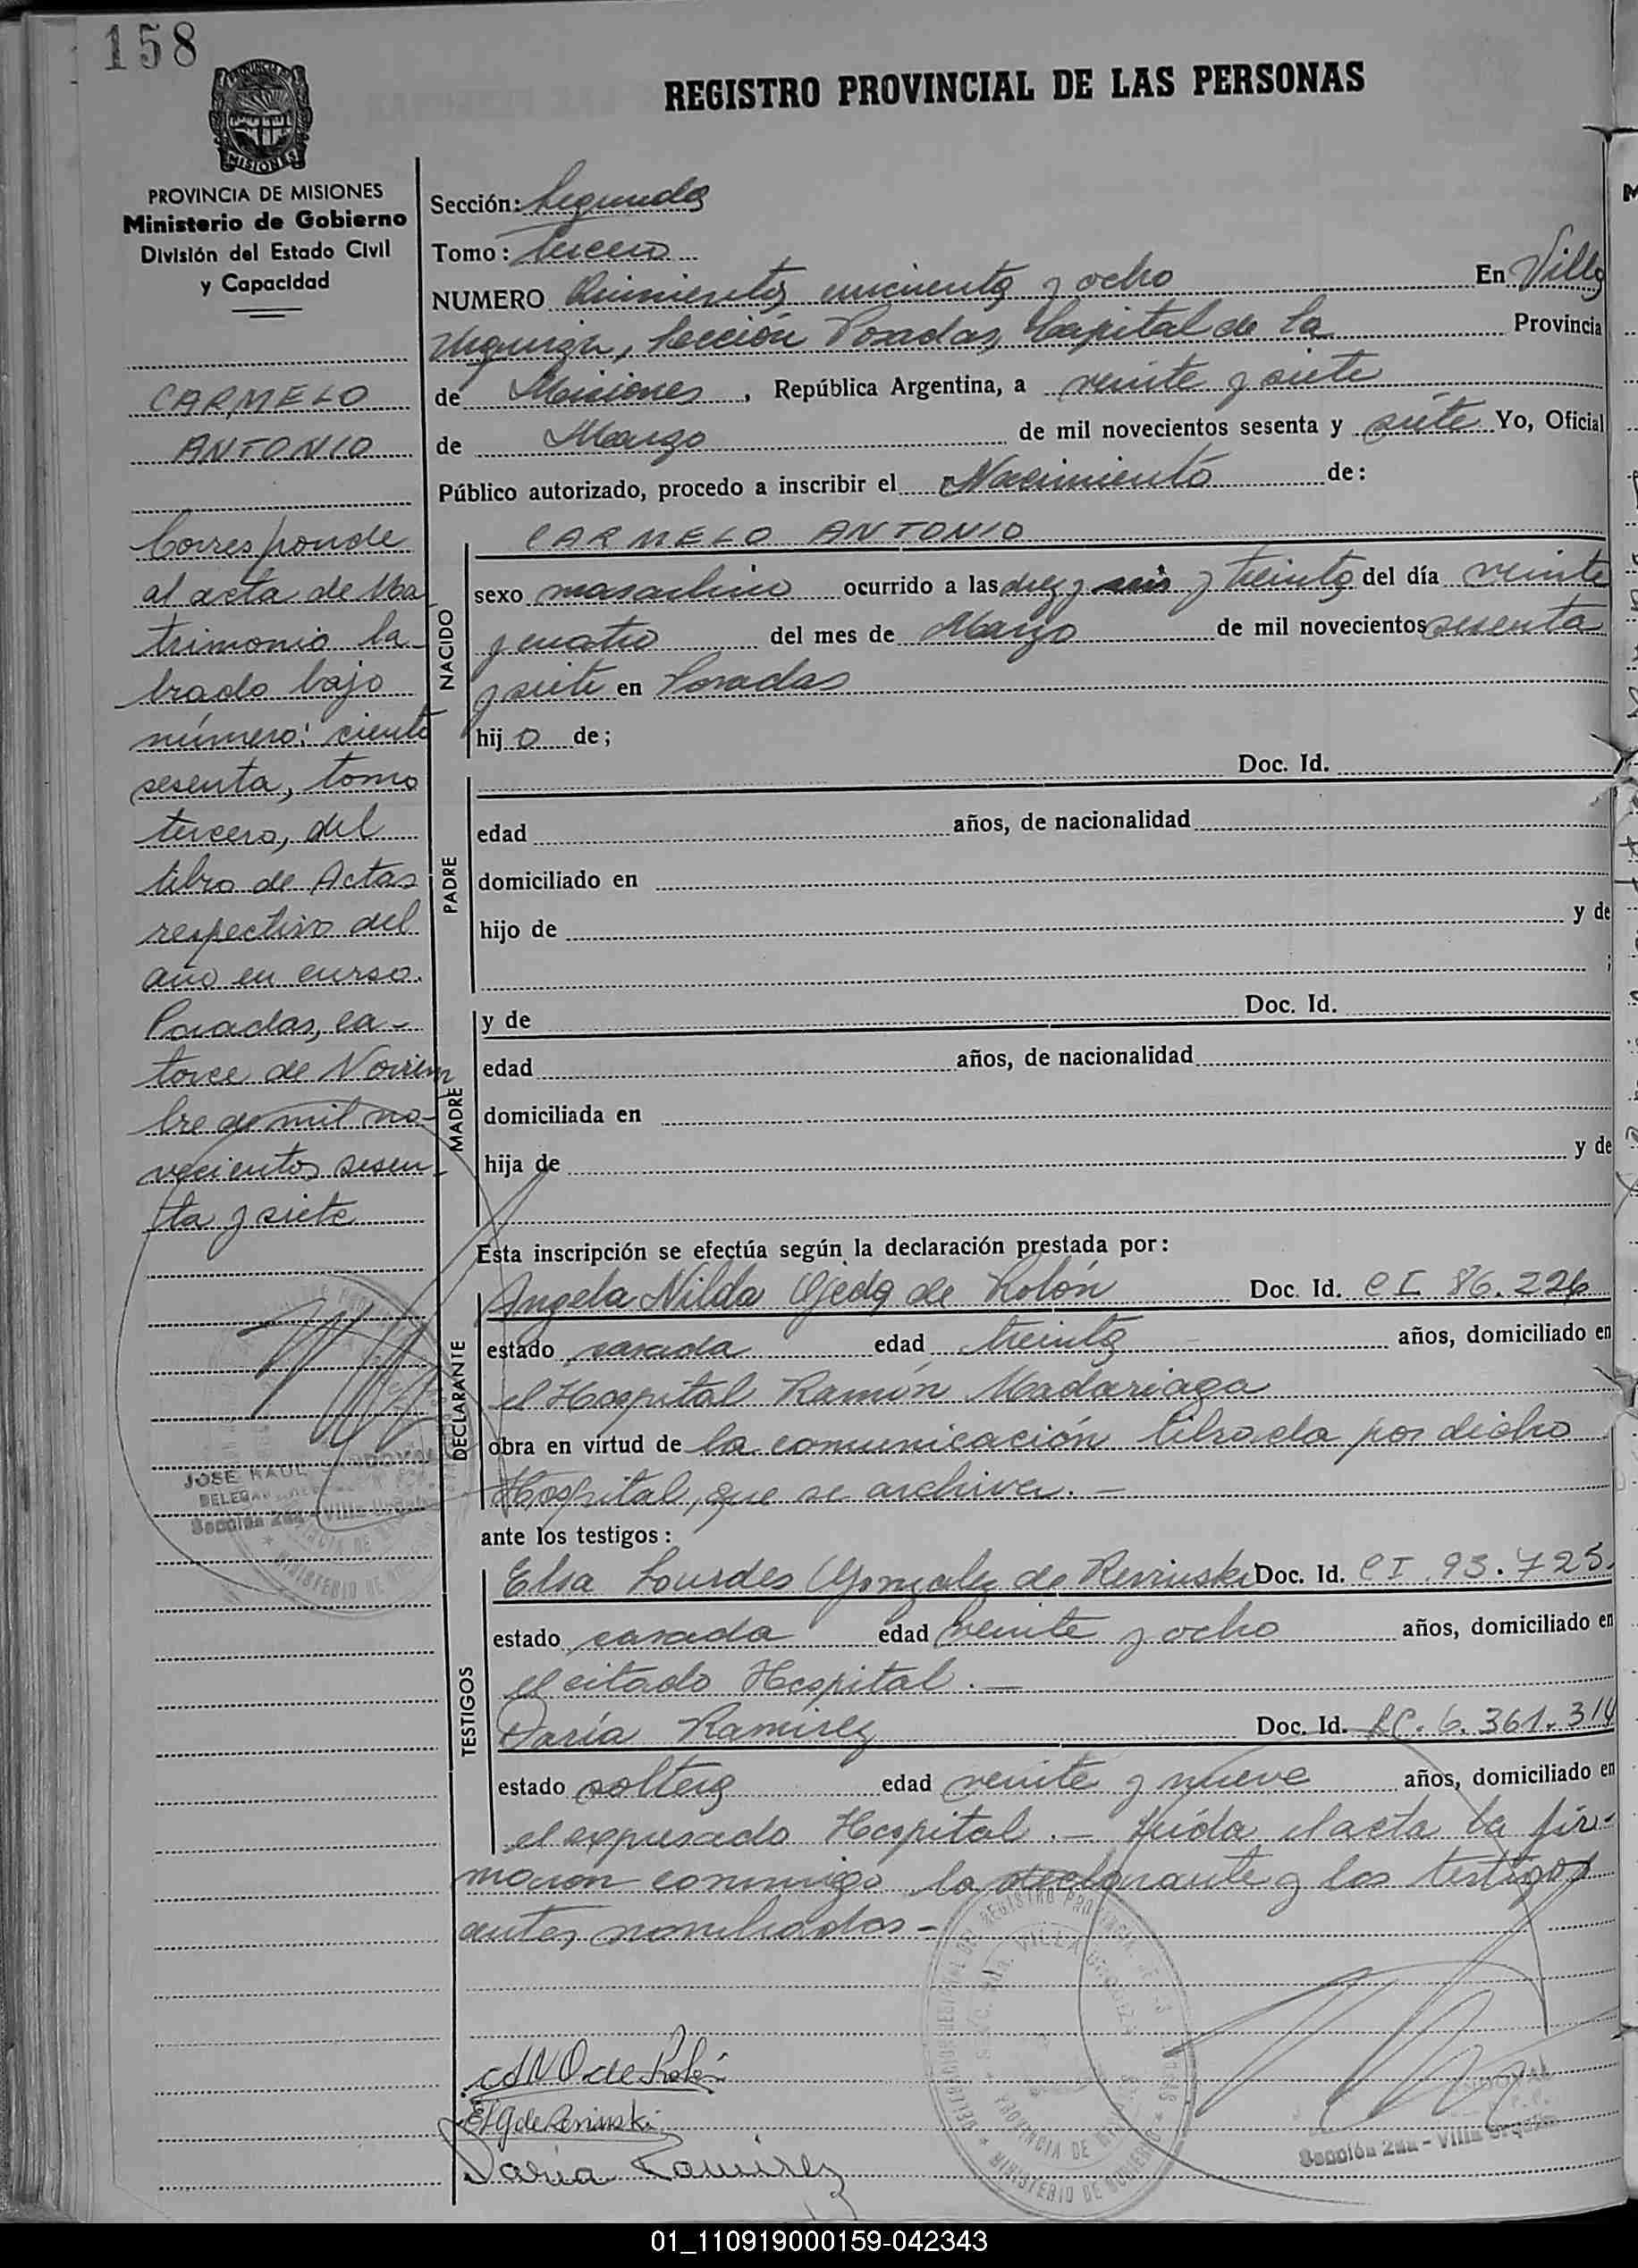 158
MISIONES
REGISTRO PROVINCIAL DE LAS PERSONAS
PROVINCIA DE MISIONES
Ministerio de Gobierno
División del Estado Civil
y Capacidad
CARMELO
ANTONIO
Corresponde
al acta de Ma
trimonio la-
brado bajo
número: ciento
sesenta, tomo
tercero, del
libro de Actas
respectivo del
año en curso.
Posadas, ca-
torce de Noviem
bre de mil no-
vecientos sesen-
ta y siete
JOSE RAUL
Sección 2da - Villa Urquiza
Sección: Segunda
Tomo: Tercero
NUMERO Quinientos cincuenta y ocho En Villa
Urquiza, Sección Posadas, Capital de la Provincia
de Misiones, República Argentina, a veinte y siete
de Marzo de mil novecientos sesenta y siete Yo, Oficial
Público autorizado, procedo a inscribir el Nacimiento de:
NACIDO
CARMELO ANTONIO
sexo masculino ocurrido a las diez y seis y treinta del día veinte
y cuatro del mes de Marzo de mil novecientos sesenta
y siete en Posadas
hijo de;
PADRE
Doc. Id.
edad años, de nacionalidad
domiciliado en
hijo de y de
;
MADRE
y de Doc. Id.
edad años, de nacionalidad
domiciliada en
hija de y de
Esta inscripción se efectúa según la declaración prestada por:
DECLARANTE
Angela Nilda Ojeda de Rolón Doc. Id. CI 86.226
estado casada edad treinta años, domiciliado en
el Hospital Ramón Madariaga
obra en virtud de la comunicación librada por dicho
Hospital, que se archiva.-
ante los testigos:
TESTIGOS
Elsa Lourdes Gonzalez de Doc. Id. CI 93.725.
estado casada edad veinte y ocho años, domiciliado en
el citado Hospital.-
Daría Ramirez Doc. Id. LC. 6.361.314
estado soltera edad veinte y nueve años, domiciliado en
el expresado Hospital.- Leída el acta la fir-
maron conmigo la declarante y los testigos
antes nombrados-
ANO de Rolón
ELG de
Daria Ramirez
VILLA URQUIZA
PROVINCIA DE MISIONES
MINISTERIO DE GOBIERNO
Sección 2da - Villa Urquiza
01_110919000159-042343